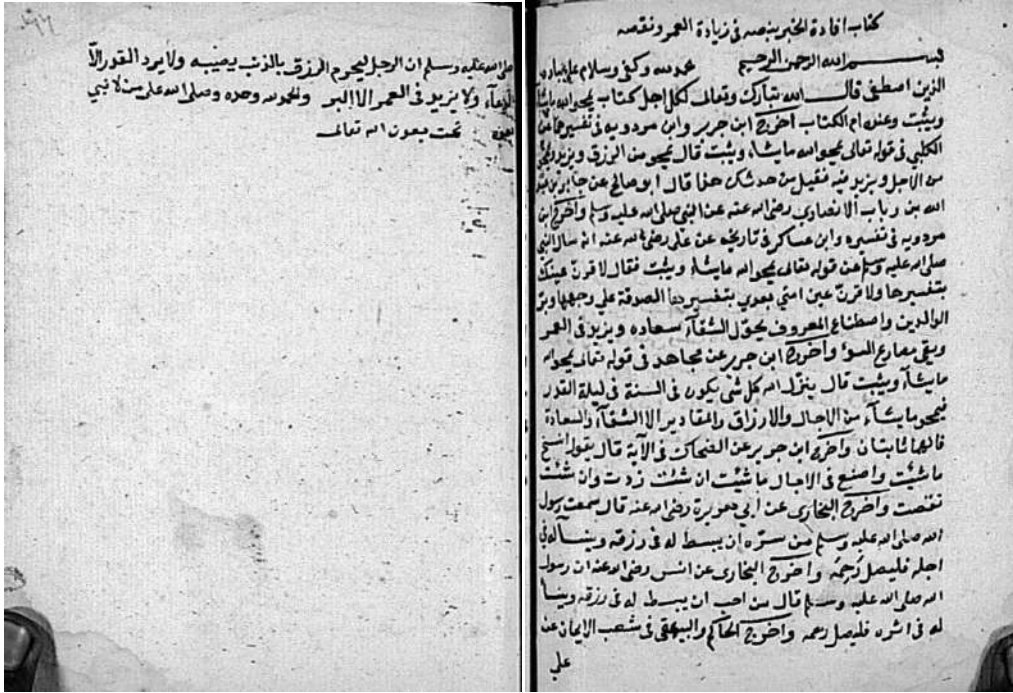 كتاب افادة الخبر بنصه فى زيادة العمر ونقصه
بسم الله الرحمن الرحيم حمد لله وكفى وسلام على عباده
الذين اصطفى قال الله تبارك وتعالى لكل اجل كتاب يمحوا الله ما يشاء
ويثبت وعنده ام الكتاب اخرج ابن جرير وابن مردويه فى تفسيرهما عن
الكلبي فى قوله تعالى يمحو الله ما يشاء ويثبت قال يمحو من الرزق ويزيد
من الاجل ويزيد فيه فقيل من حدثك هذا قال ابو صالح عن جابر بن
الله بن رباب الانصاري رضى الله عنه عن النبى صلى الله عليه وسلم واخرج ابن
مردويه فى تفسيره وابن عساكر فى تاريخه عن على رضى الله عنه انه سال النبى
صلى الله عليه وسلم عن قوله تعالى يمحوا الله ما يشاء ويثبت فقال لاقرن عينك
بتفسيرها ولاقرن عين امتي بعدي بتفسيرها الصدقة على وجهها وبر
الوالدين واصطناع المعروف يحول الشقآء سعاده ويزيد فى العمر
ويقى مصارع السؤ واخرج ابن جرير عن مجاهد فى قوله تعالى يمحو الله
ما يشآء ويثبت قال ينزل الله كل شى يكون فى السنة فى ليلة القدر
فيمحو ما يشآء من الاجال والارزاق والمقادير الا الشقآء والسعادة
فانهما ثابتان واخرج ابن جرير عن الضحاك فى الآية قال يقول انسخ
ما شئت واصنع فى الاجال ما شئت ان شئت زدت وان شئت
نقصت واخرج البخارى عن ابي هريرة رضى الله عنه قال سمعت رسول
الله صلى الله عليه وسلم من سره ان يبسط له فى رزقه وينسأ له فى
اجله فليصل رحمه واخرج البخارى عن انس رضى الله عنه ان رسول
الله صلى الله عليه وسلم قال من احب ان يبسط له فى رزقه وينسأ
له فى اثره فليصل رحمه واخرج الحاكم والبيهقى فى شعب الايمان عن
على
صلى الله عليه وسلم ان الرجل ليحرم الرزق بالذنب يصيبه ولا يرد القدر الآ
الدعآء ولا يزيد فى العمر الا البر والحمد لله وحده وصلى الله على من لا نبي
بعده تمت بعون الله تعالى